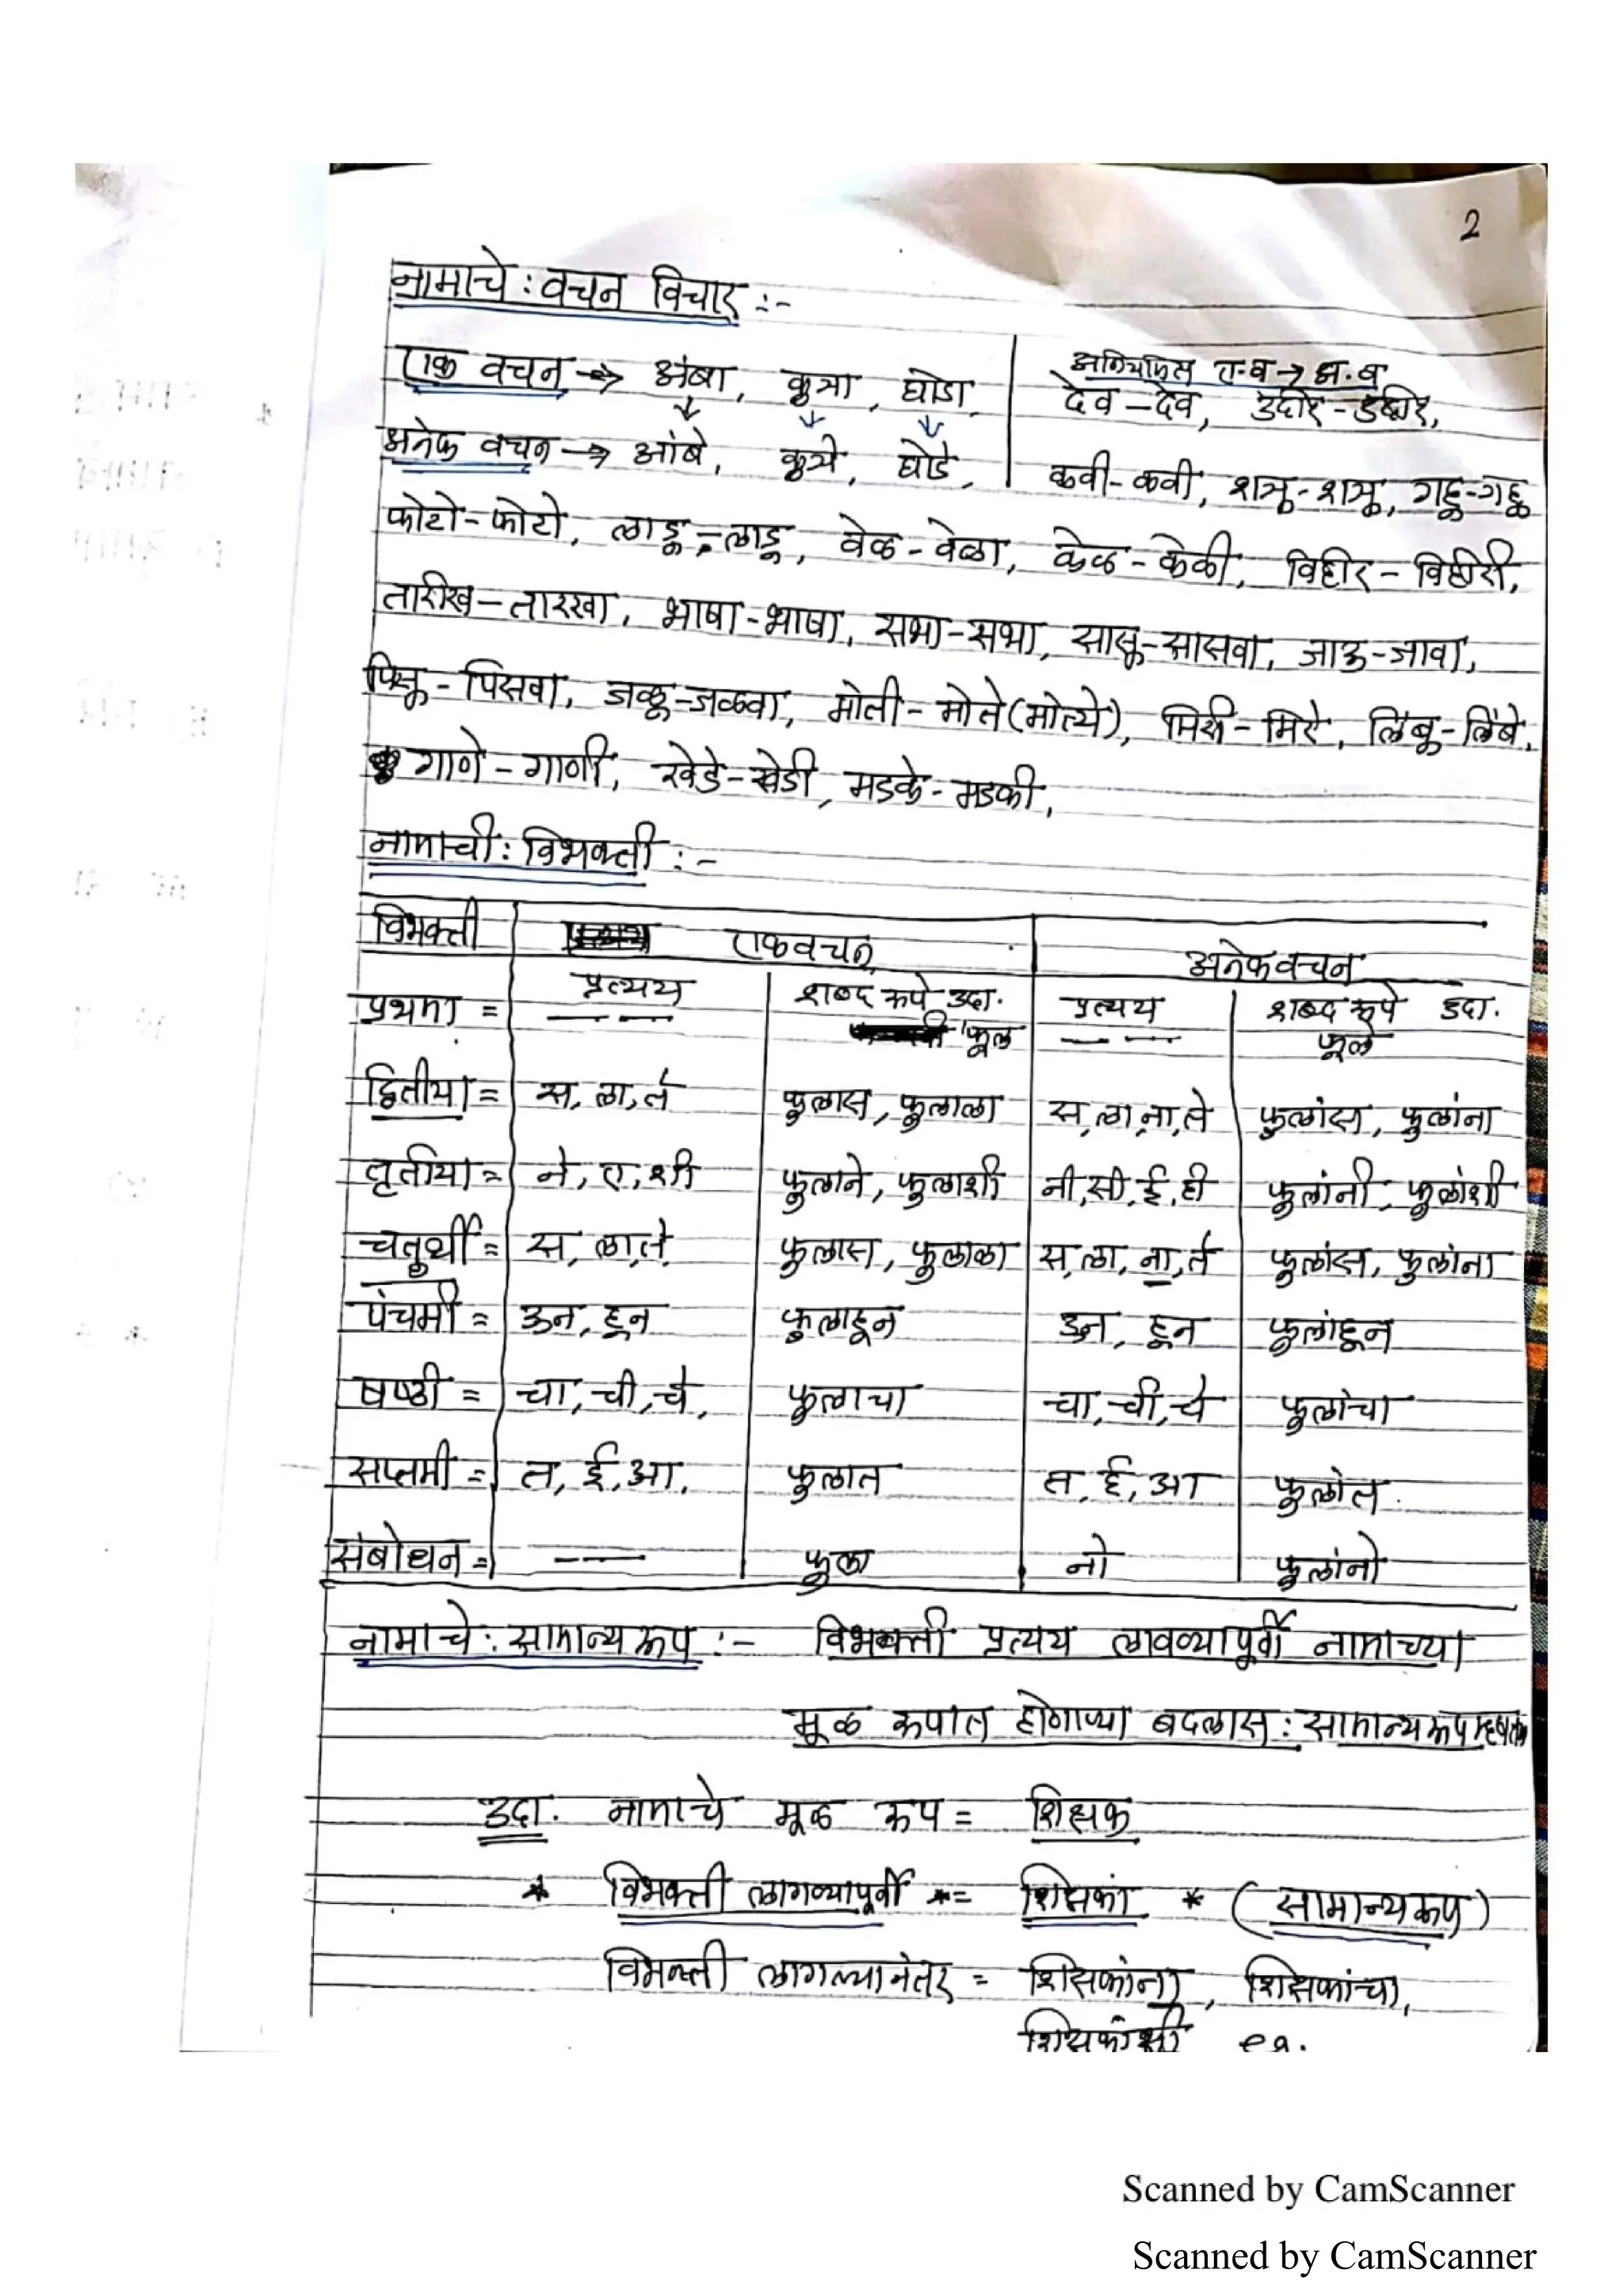 2
नामाचे : वचन विचार :-
एक वचन → अंबा, कुत्रा, घोडा,
अनियमित ए.व → अ.व
देव - देव, उंदीर - उंदीर,
अनेक वचन → आंबे, कुत्रे, घोडे,
कवी - कवी, शत्रू - शत्रू, गहू - गहू
फोटो - फोटो, लाडू - लाडू, वेळ - वेळा, केळ - केळी, विहीर - विहीरी,
तारीख - तारखा, भाषा - भाषा, सभा - सभा, सासू - सासवा, जाऊ - जावा,
पिसू - पिसवा, जळू - जळवा, मोती - मोते (मोत्ये), मिरी - मिरे, लिंबू - लिंबे,
गाणे - गाणी, खेडे - खेडी, मडके - मडकी,
नामाची : विभक्ती :-
विभक्ती एकवचन अनेकवचन
प्रत्यय शब्द रूपे उदा. प्रत्यय शब्द रूपे उदा.
प्रथमा = — — फूल — — फूले
द्वितीया = स, ला, ते फुलास, फुलाला स, ला, ना, ते फुलांस, फुलांना
तृतीया = ने, ए, शी फुलाने, फुलाशी नी, सी, ई, ही फुलांनी, फुलांशी
चतुर्थी = स, ला, ते, फुलास, फुलाला स, ला, ना, ते फुलांस, फुलांना
पंचमी = ऊन, हून फुलाहून ऊन, हून फुलांहून
षष्ठी = चा, ची, चे, फुलाचा चा, ची, चे फुलांचा
सप्तमी = त, ई, आ, फुलात त, ई, आ फुलांत
संबोधन = — — फुला नो फुलांनो
नामाचे : सामान्यरूप :- विभक्ती प्रत्यय लावण्यापूर्वी नामाच्या
मूळ रूपात होणाऱ्या बदलास : सामान्यरूप म्हणतात
उदा. नामाचे मूळ रूप = शिक्षक
* विभक्ती लागण्यापूर्वी * = शिक्षकां * (सामान्यरूप)
विभक्ती लागल्यानंतर = शिक्षकांना, शिक्षकांचा,
शिक्षकांशी
Scanned by CamScanner
Scanned by CamScanner